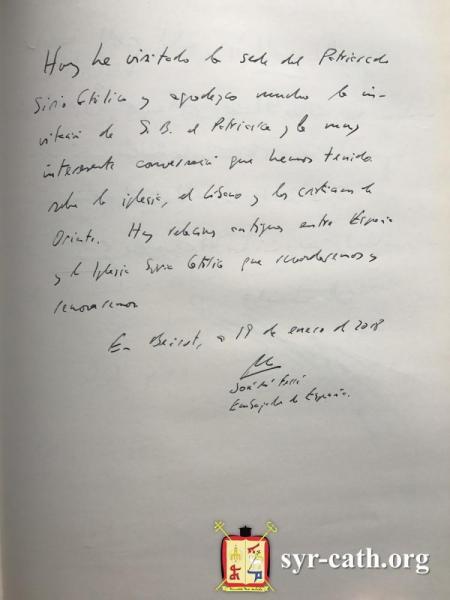 Hoy he visitado la sede del Patriarcado
Sirio Católico y agradezco mucho la in-
vitación de S.B. el Patriarca y la muy
interesante conversación que hemos tenido
sobre la iglesia, el Líbano y los cristianos de
Oriente. Hay relaciones antiguas entre España
y la Iglesia Siria Católica que recordaremos y
renovaremos
En Beirut, a 19 de enero de 2018
José Mª Ferré
Embajador de España.
syr-cath.org